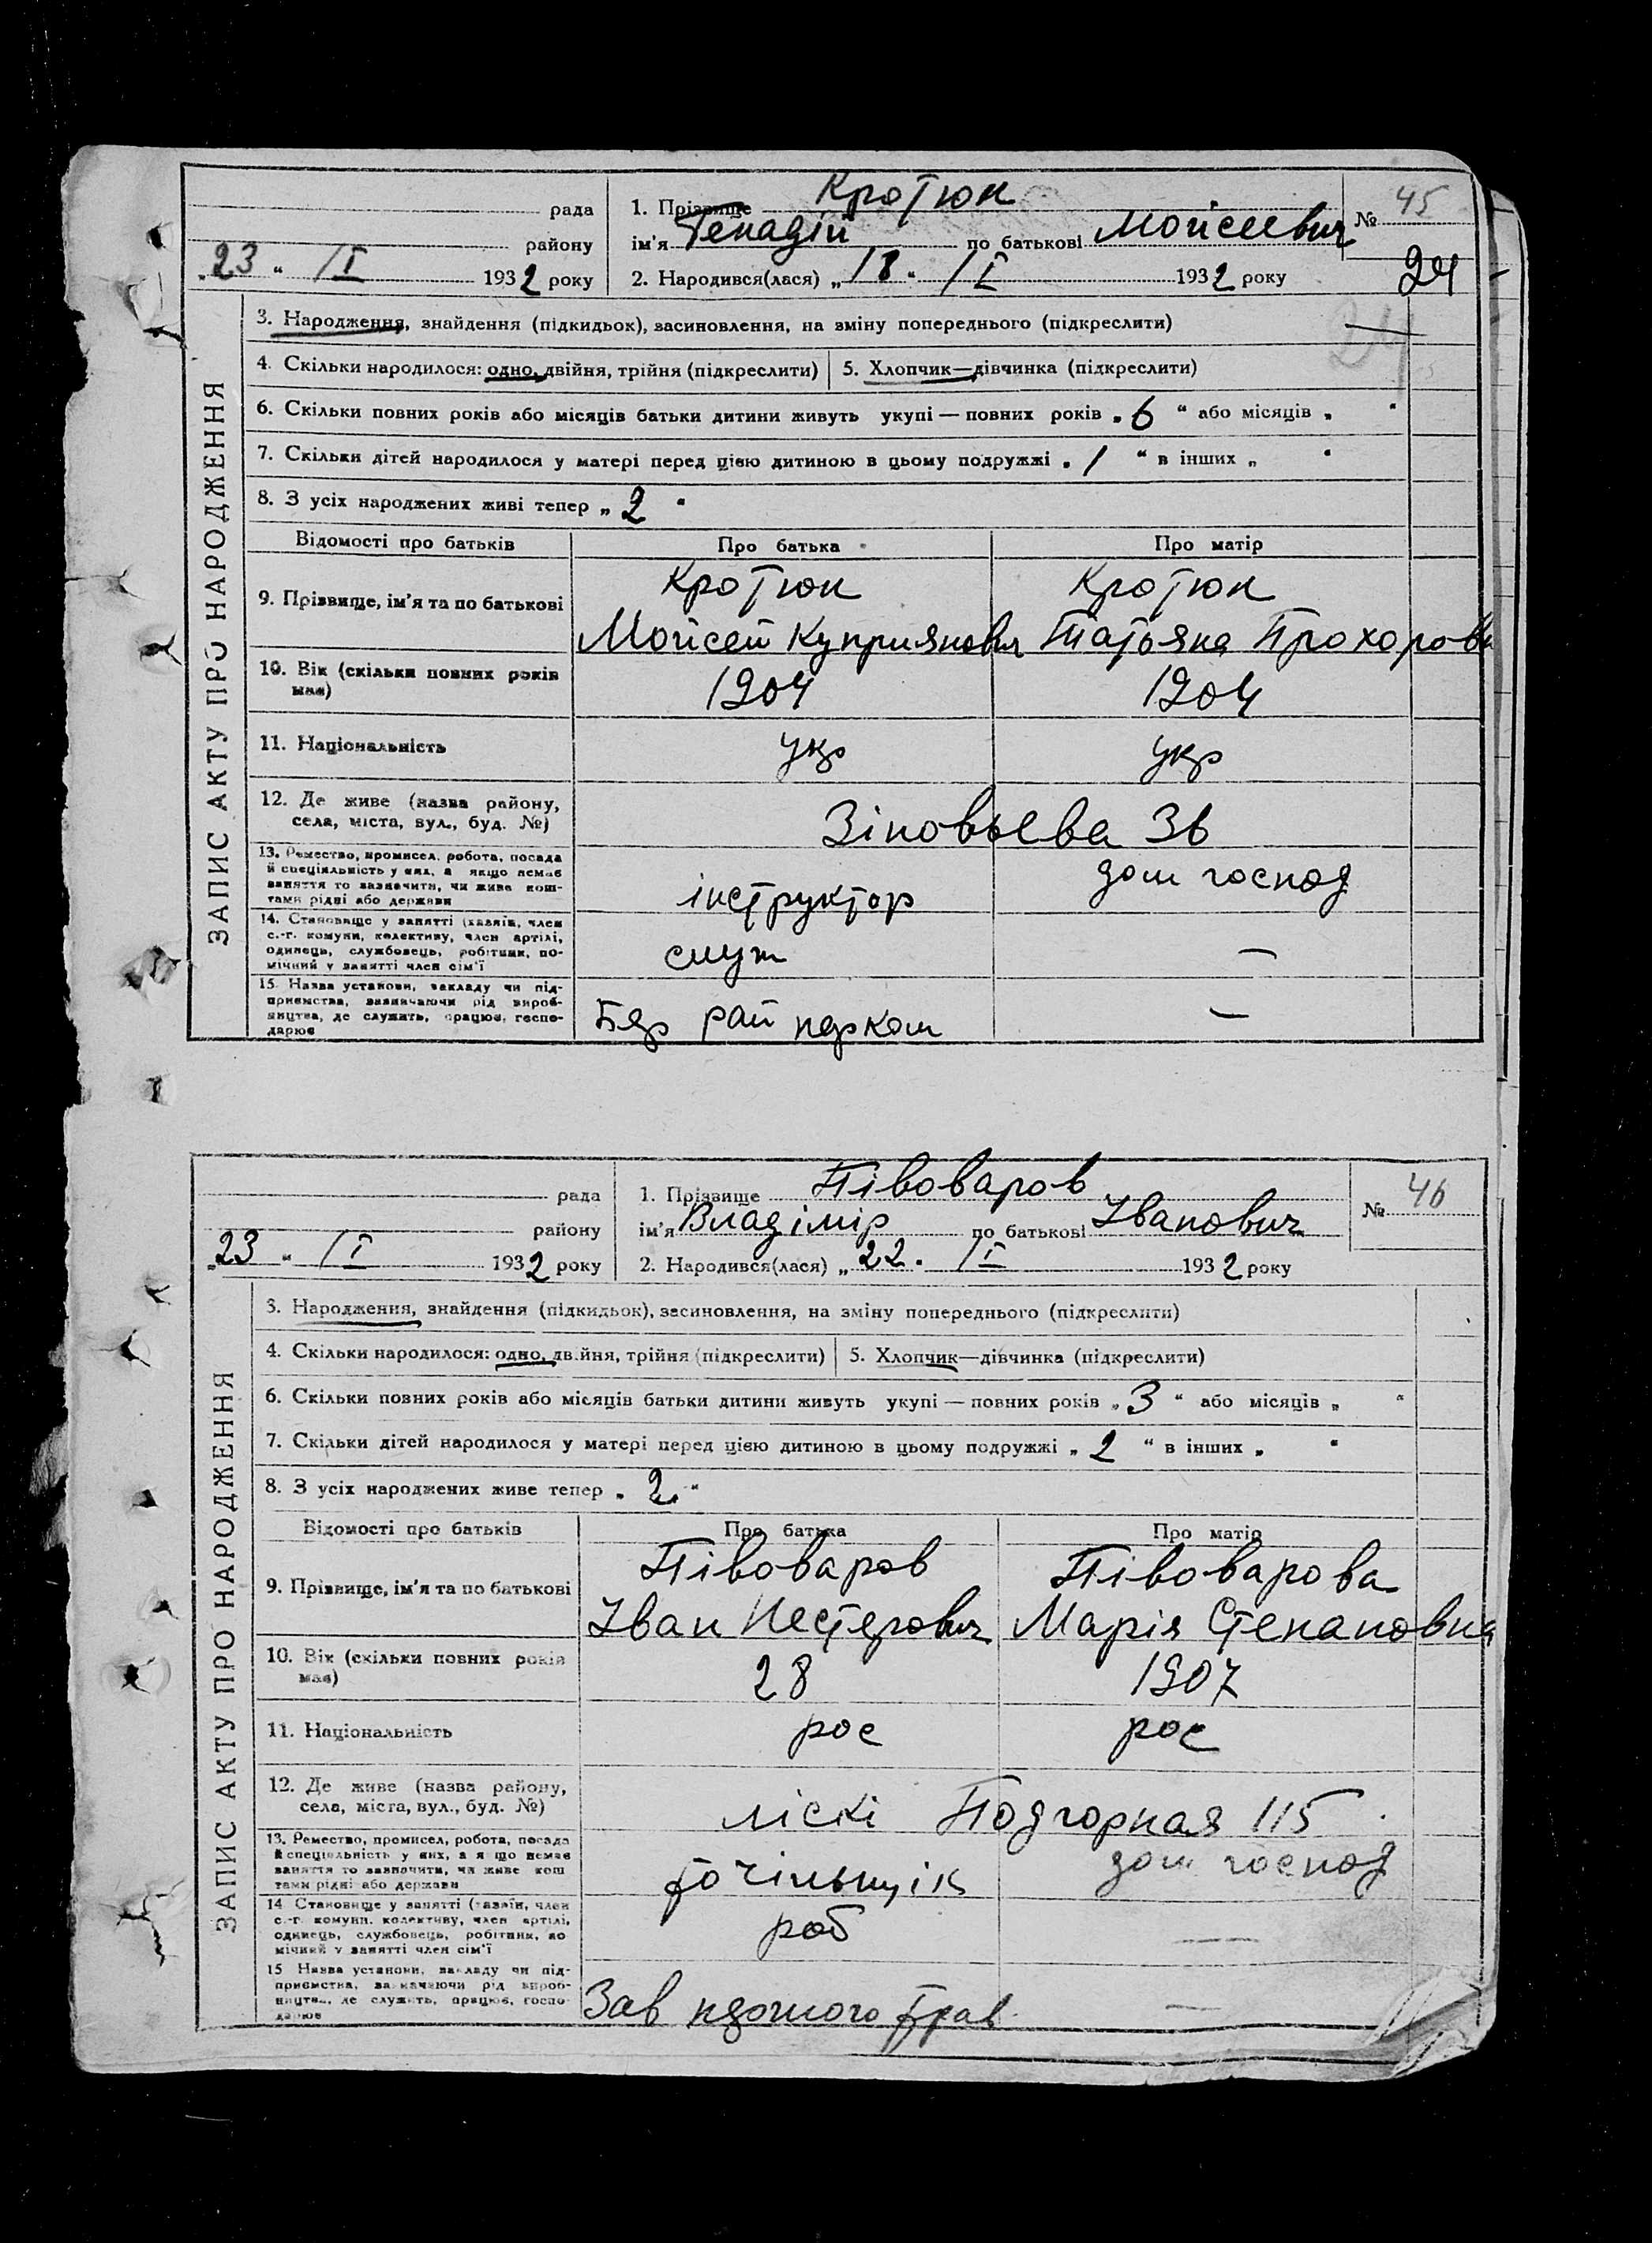 ЗАПИС АКТУ ПРО НАРОДЖЕННЯ
рада
району
„23“ /I 1932 року
1. Прізвище Кротюк
ім'я Генадій по батькові Мойсеевич
2. Народився(лася) „18“ /I 1932 року
№ 45
24
24
3. Народження, знайдення (підкидьок), засиновлення, на зміну попереднього (підкреслити)
4. Скільки народилося: одно, двійня, трійня (підкреслити)
5. Хлопчик—дівчинка (підкреслити)
6. Скільки повних років або місяців батьки дитини живуть укупі — повних років „6“ або місяців „ “
7. Скільки дітей народилося у матері перед цією дитиною в цьому подружжі „1“ в інших „ “
8. З усіх народжених живі тепер „2“
Відомості про батьків
Про батька
Про матір
9. Прізвище, ім'я та по батькові
Кротюк
Мойсей Куприянович
Кротюк
Татьяна Прохоровн
10. Вік (скільки повних років має)
1904
1904
11. Національність
укр
укр
12. Де живе (назва району,
села, міста, вул., буд. №)
Зіновьева 36
13. Ремество, промисел, робота, посада
й спеціяльність у них, а якщо немає
заняття то зазначити, чи живе кош-
тами рідні або держави
інструктор
дом господ
14. Становище у занятті (хазяїн, член
с.-г. комуни, колективу, член артілі,
одинець, службовець, робітник, по-
мічний у занятті член сім'ї
служ
—
15. Назва установи, закладу чи під-
приємства, зазначаючи рід вироб-
ництва, де служить, працює, госпо-
дарює
Бер рай парком
—
ЗАПИС АКТУ ПРО НАРОДЖЕННЯ
рада
району
„23“ /I 1932 року
1. Прізвище Півоваров
ім'я Владімір по батькові Іванович
2. Народився(лася) „22“ /I 1932 року
№ 46
3. Народження, знайдення (підкидьок), засиновлення, на зміну попереднього (підкреслити)
4. Скільки народилося: одно, двійня, трійня (підкреслити)
5. Хлопчик—дівчинка (підкреслити)
6. Скільки повних років або місяців батьки дитини живуть укупі — повних років „3“ або місяців „ “
7. Скільки дітей народилося у матері перед цією дитиною в цьому подружжі „2“ в інших „ “
8. З усіх народжених живе тепер „2“
Відомості про батьків
Про батька
Про матір
9. Прізвище, ім'я та по батькові
Півоваров
Іван Нестерович
Півоварова
Марія Степановна
10. Вік (скільки повних років має)
28
1907
11. Національність
рос
рос
12. Де живе (назва району,
села, міста, вул., буд. №)
ліскі Подгорная 115
13. Ремество, промисел, робота, посада
й спеціяльність у них, а якщо немає
заняття то зазначити, чи живе кош
тами рідні або держави
точільщік
дом господ
14 Становище у занятті (хазяїн, член
с.-г. комуни, колективу, член артілі,
одинець, службовець, робітник, по
мічний у занятті член сім'ї
роб
—
15 Назва установи, закладу чи під-
приємства, зазначаючи рід вироб-
ництва, де служить, працює, госпо-
дарює
Зав першого трав
—